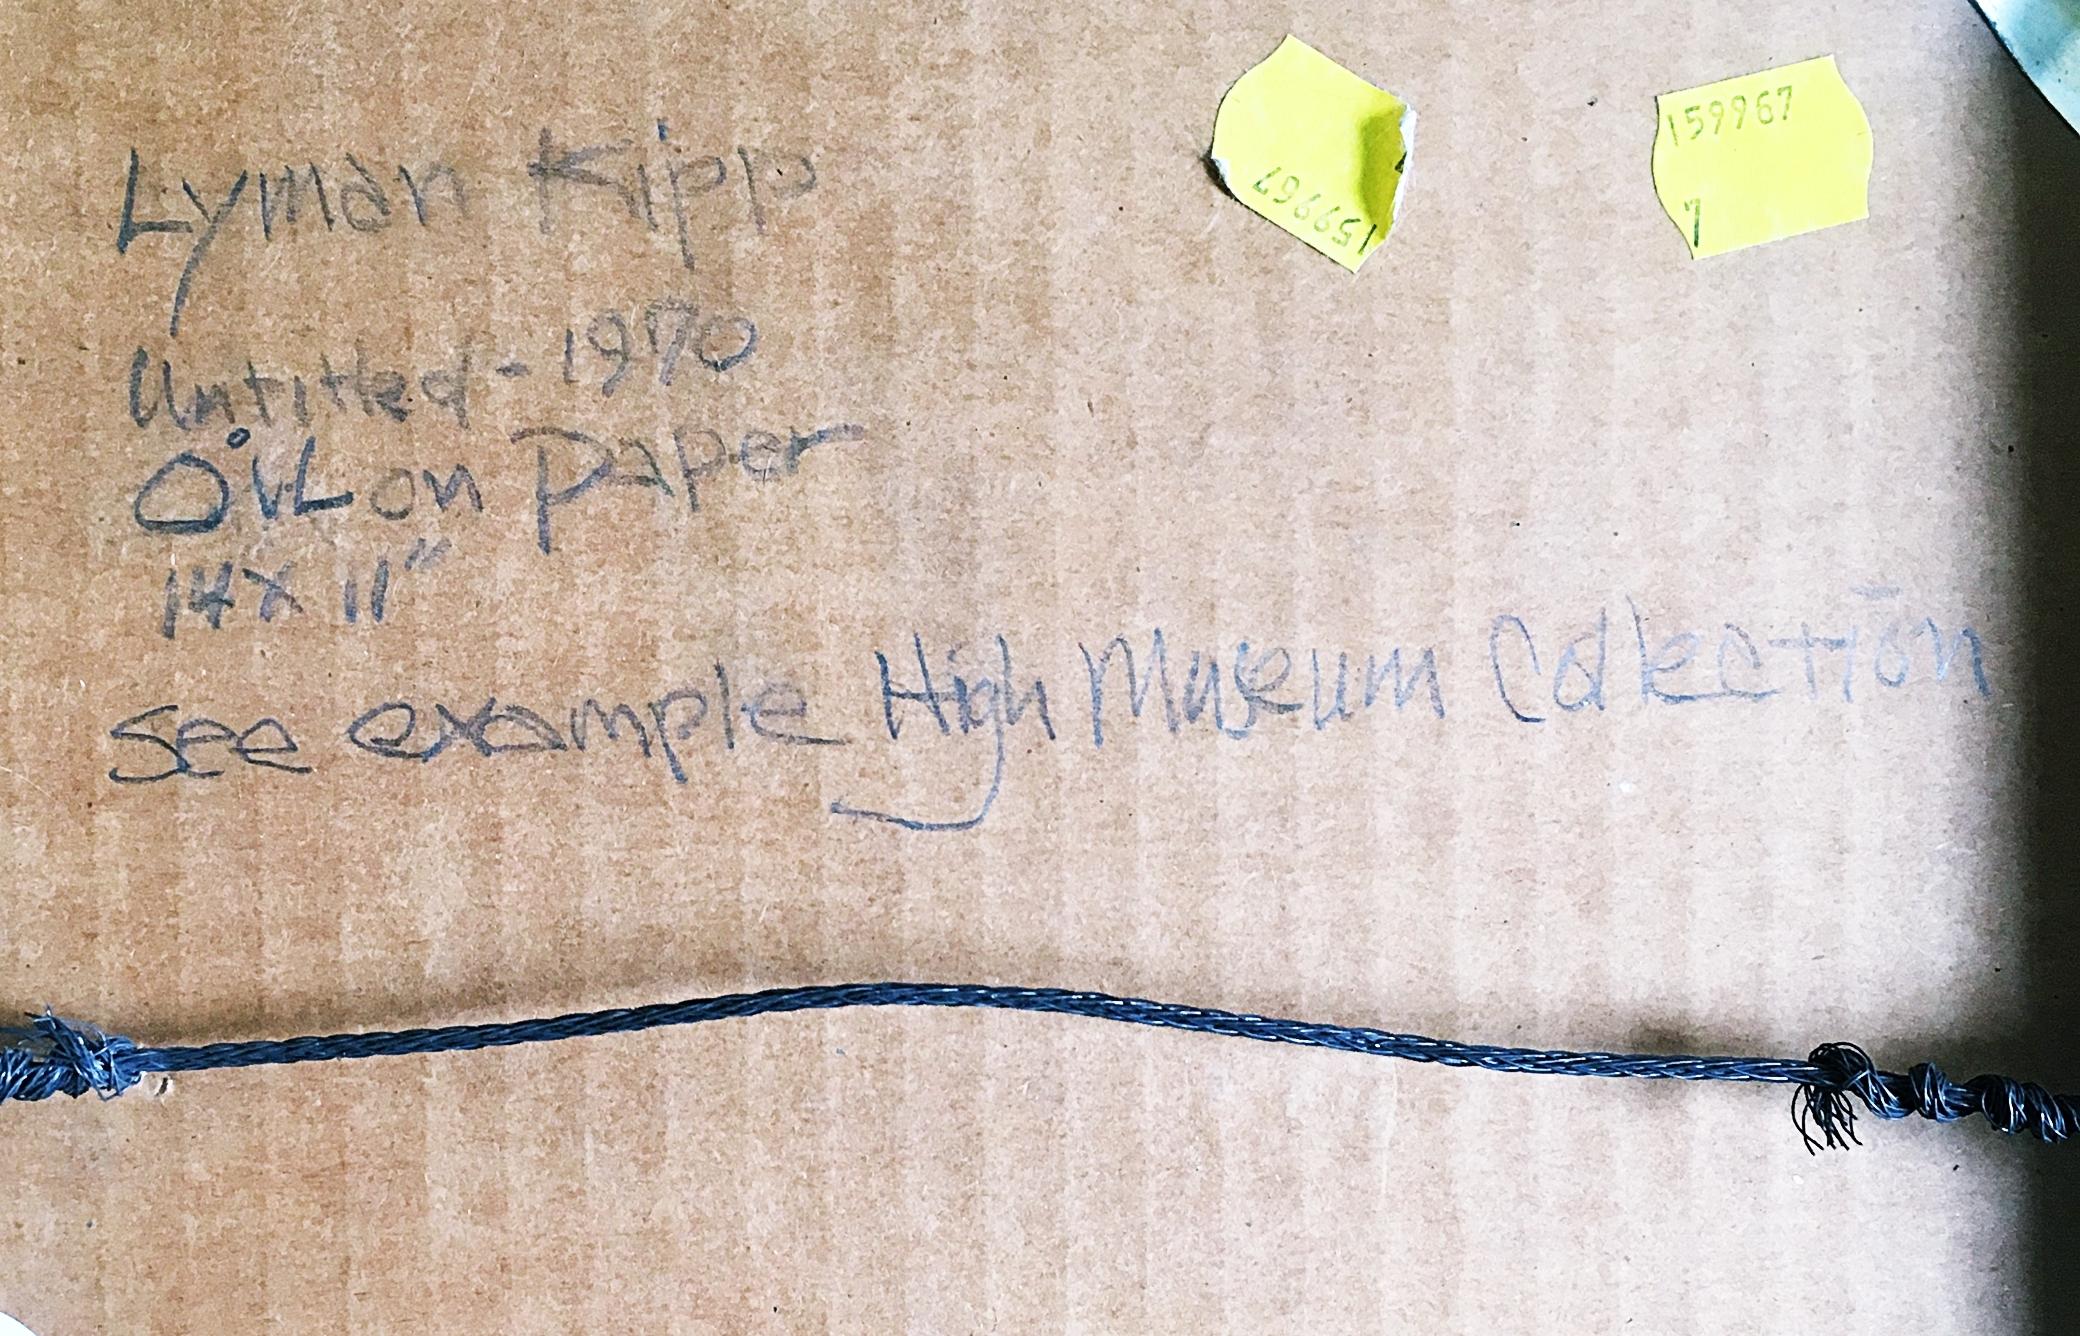 Lyman Kipp
Untitled - 1970
Oil on Paper
14 x 11"
see example High Museum Collection
159967
159967
7